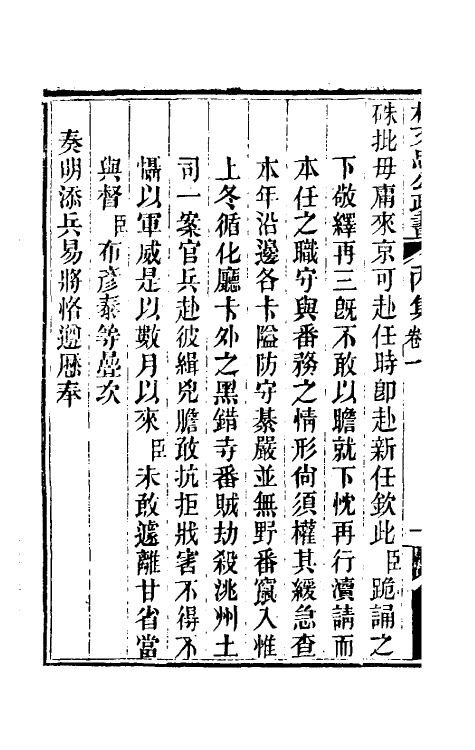 林文忠公政書 丙集 卷一
硃批毋庸來京可赴任時卽赴新任欽此臣跪誦之
下敬繹再三旣不敢以瞻就下忱再行瀆請而
本任之職守與番務之情形尙須權其緩急查
本年沿邊各卡隘防守綦嚴並無野番竄入惟
上冬循化廳卡外之黑錯寺番賊劫殺洮州土
司一案官兵赴彼緝兇膽敢抗拒戕害不得不
懾以軍威是以數月以來臣未敢遽離甘省當
與督臣布彥泰等疊次
奏明添兵易將恪遵歷奉